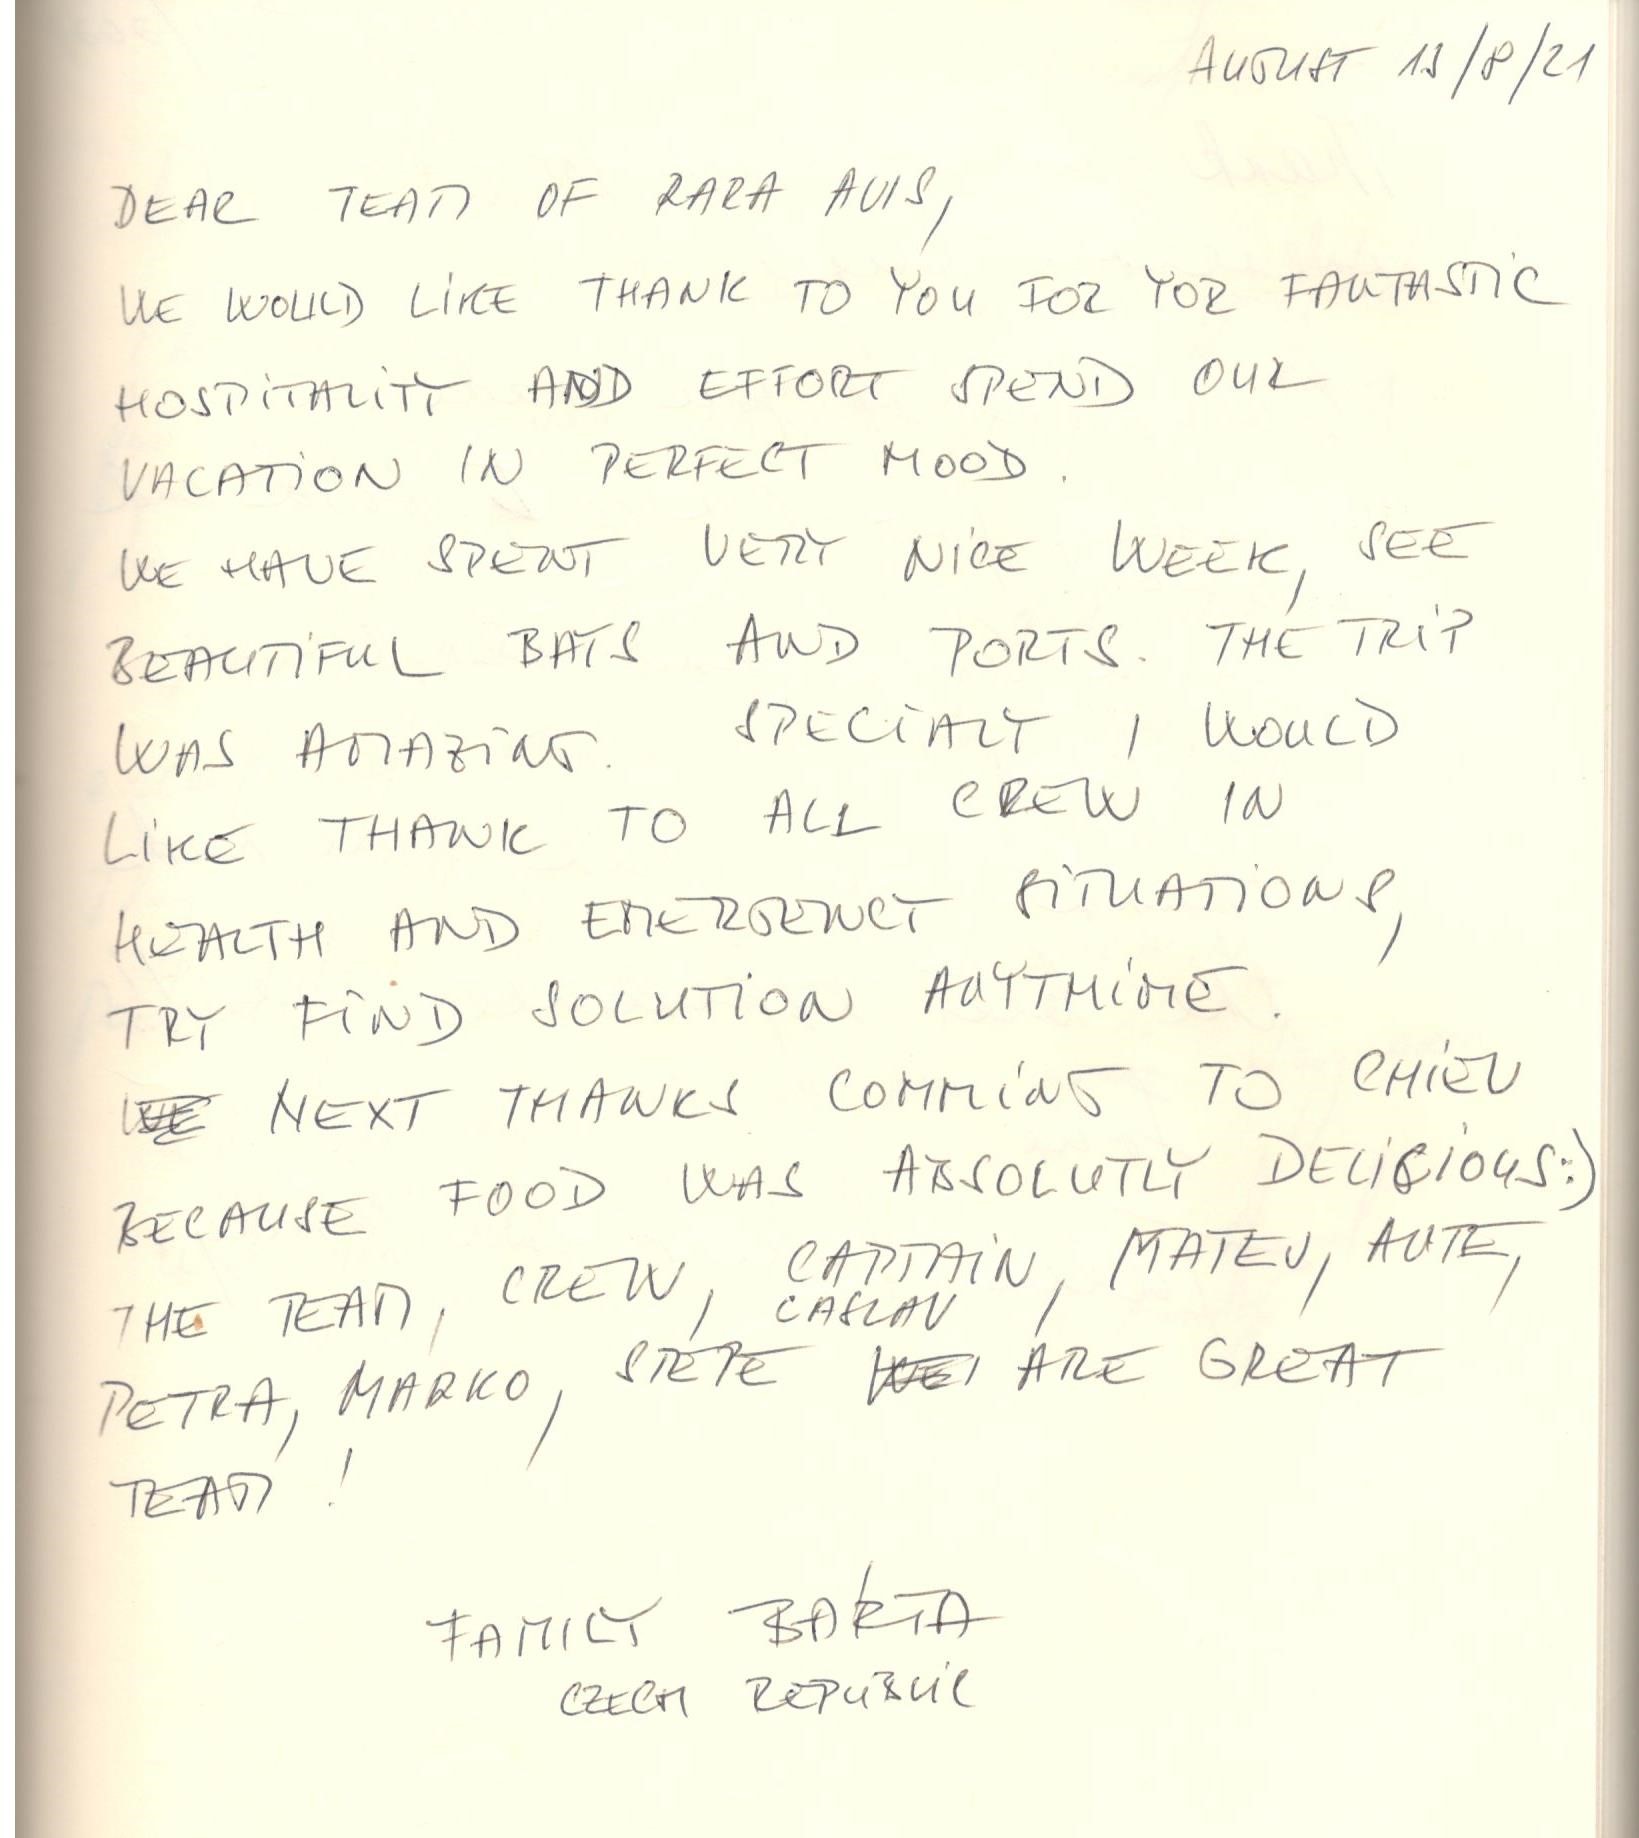 AUGUST 13/8/21
DEAR TEAM OF RARA AVIS,
WE WOULD LIKE THANK TO YOU FOR YOR FANTASTIC
HOSPITALITY AND EFFORT SPEND OUR
VACATION IN PERFECT MOOD.
WE HAVE SPENT VERY NICE WEEK, SEE
BEAUTIFUL BAYS AND PORTS. THE TRIP
WAS AMAZING. SPECIALY I WOULD
LIKE THANK TO ALL CREW IN
HEALTH AND EMERGENCY SITUATIONS,
TRY FIND SOLUTION ANYTHIME.
NEXT THANKS COMMING TO CHIEV
BECAUSE FOOD WAS ABSOLUTLY DELICIOUS:)
THE TEAM, CREW, CAPTAIN CASLAV, MATEJ, ANTE,
PETRA, MARKO, STEPE ARE GREAT
TEAM!
FAMILY BARTA
CZECH REPUBLIC